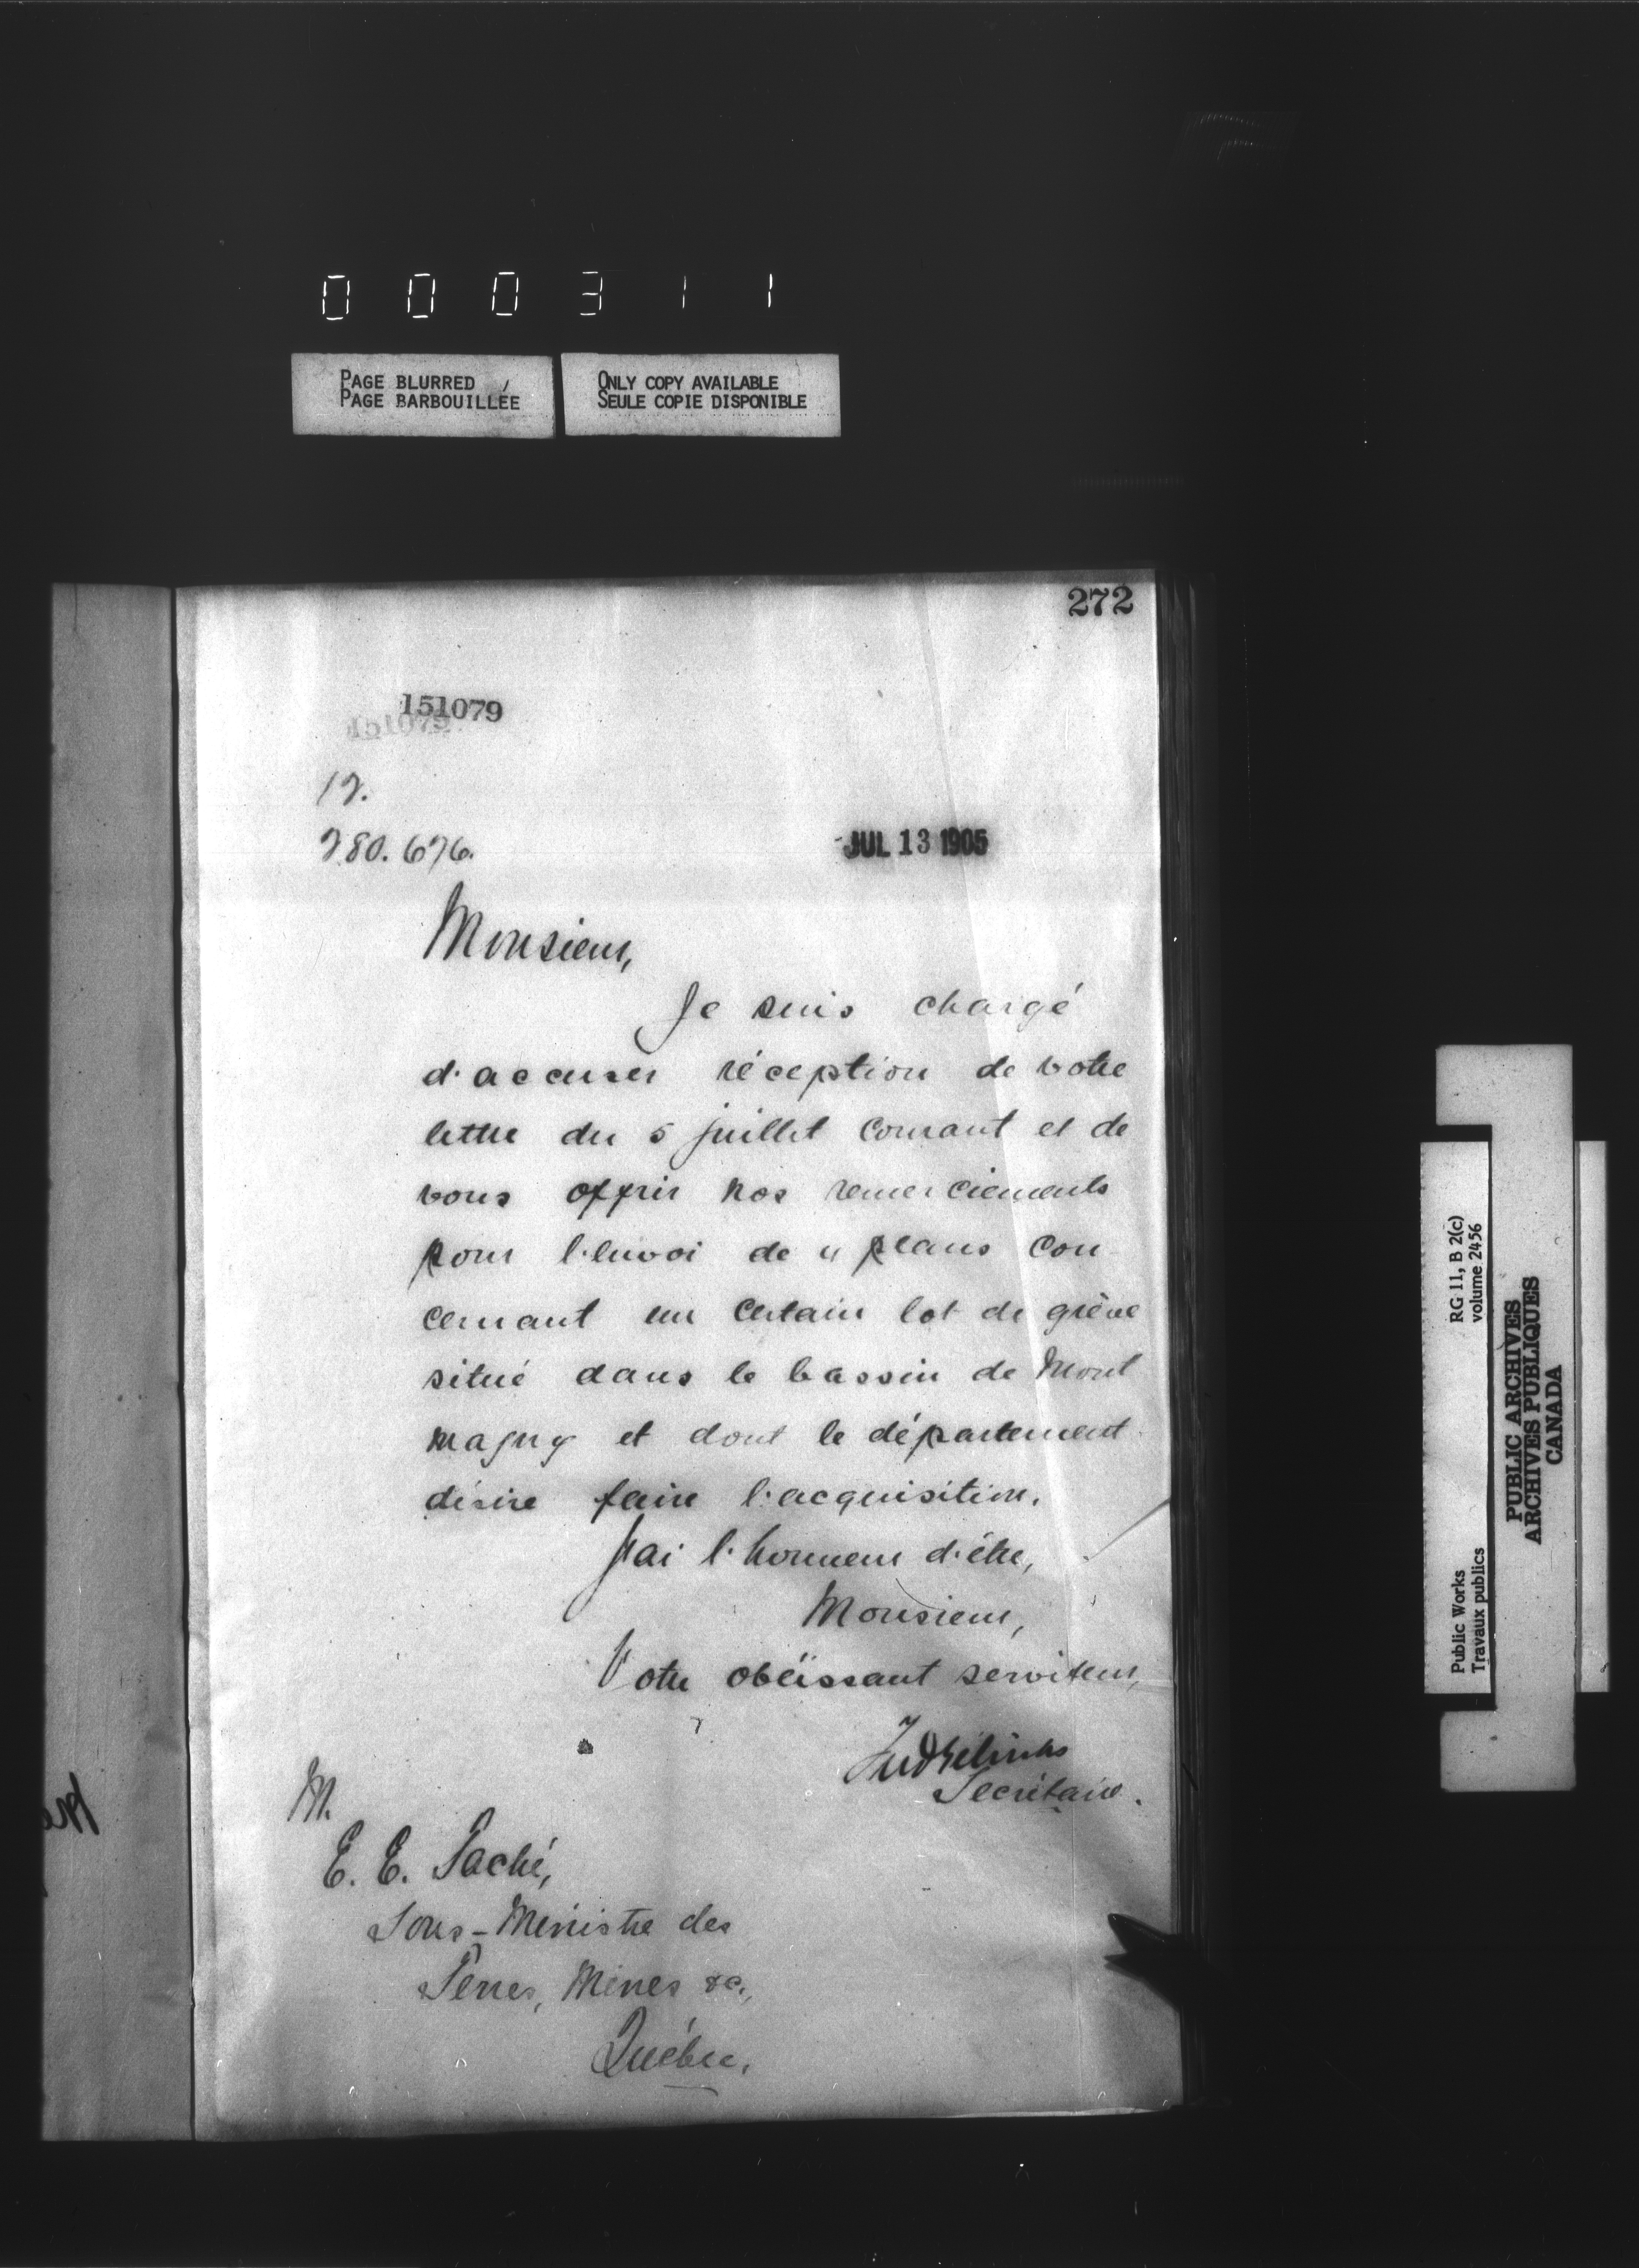 000311
PAGE BLURRED
PAGE BARBOUILLÉE
ONLY COPY AVAILABLE
SEULE COPIE DISPONIBLE
272
151079
151079
12.
280.676.
JUL 13 1905
Monsieur,
Je suis chargé
d'accuser réception de votre
lettre du 5 juillet courant et de
vous offrir nos remerciements
pour l'envoi de 4 plans con-
cernant un certain lot de grève
situé dans le bassin de Mont
magny et dont le département
désire faire l'acquisition.
J'ai l'honneur d'être,
Monsieur,
Votre obéissant serviteur,
Secrétaire.
M.
E. E. Taché,
Sous-Ministre des
Terres, Mines &c.,
Québec.
Public Works
Travaux publics
RG 11, B 2(c)
volume 2456
PUBLIC ARCHIVES
ARCHIVES PUBLIQUES
CANADA